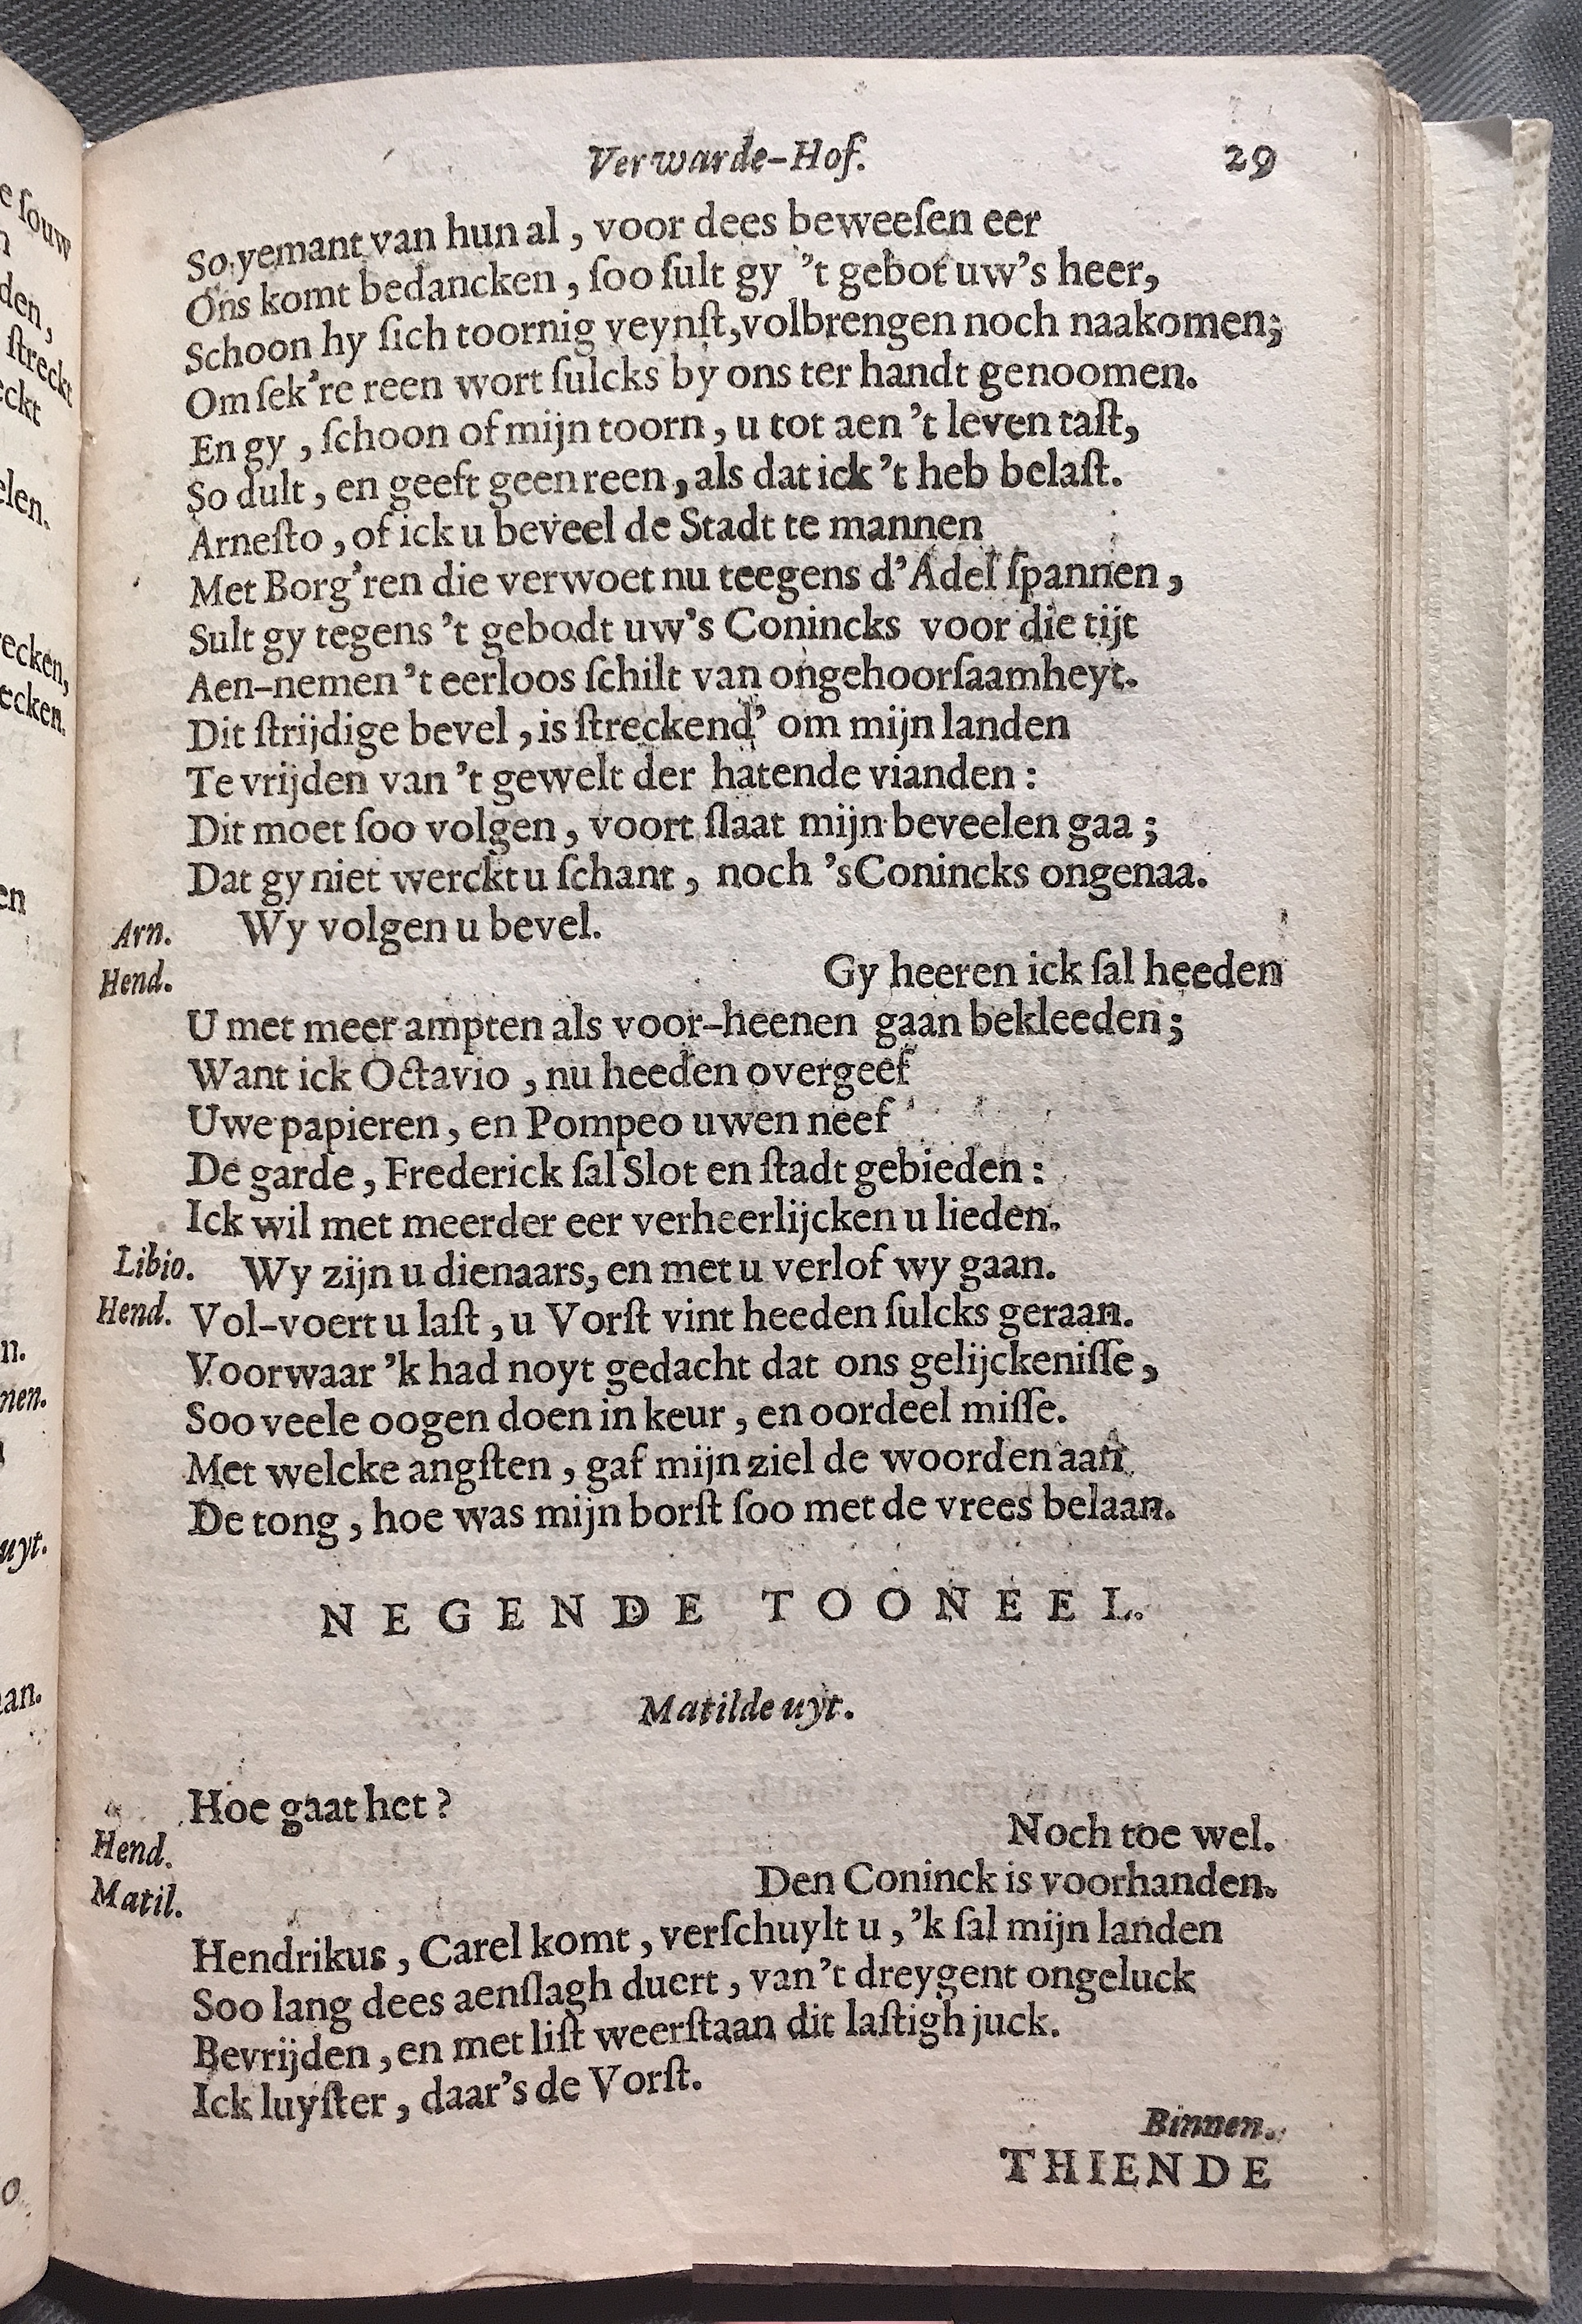 Verwarde-Hof. 29
So yemant van hun al, voor dees beweeſen eer
Ons komt bedancken, ſoo ſult gy 't gebot uw's heer,
Schoon hy ſich toornig veynſt, volbrengen noch naakomen;
Om ſek're reen wort ſulcks by ons ter handt genoomen.
En gy, ſchoon of mijn toorn, u tot aen 't leven taſt,
So dult, en geeft geen reen, als dat ick 't heb belaſt.
Arneſto, of ick u beveel de Stadt te mannen
Met Borg'ren die verwoet nu teegens d'Adel ſpannen,
Sult gy tegens 't gebodt uw's Conincks voor die tijt
Aen-nemen 't eerloos ſchilt van ongehoorſaamheyt.
Dit ſtrijdige bevel, is ſtreckend' om mijn landen
Te vrijden van 't gewelt der hatende vianden:
Dit moet ſoo volgen, voort ſlaat mijn beveelen gaa;
Dat gy niet werckt u ſchant, noch 's Conincks ongenaa.
Arn. Wy volgen u bevel.
Hend. Gy heeren ick ſal heeden
U met meer ampten als voor-heenen gaan bekleeden;
Want ick Octavio, nu heeden overgeef
Uwe papieren, en Pompeo uwen neef
De garde, Frederick ſal Slot en ſtadt gebieden:
Ick wil met meerder eer verheerlijcken u lieden.
Libio. Wy zijn u dienaars, en met u verlof wy gaan.
Hend. Vol-voert u laſt, u Vorſt vint heeden ſulcks geraan.
Voorwaar 'k had noyt gedacht dat ons gelijckeniſſe,
Soo veele oogen doen in keur, en oordeel miſſe.
Met welcke angſten, gaf mijn ziel de woorden aan
De tong, hoe was mijn borſt ſoo met de vrees belaan.
NEGENDE TOONEEL.
Matilde uyt.
Hoe gaat het?
Hend. Noch toe wel.
Matil. Den Coninck is voorhanden.
Hendrikus, Carel komt, verſchuylt u, 'k ſal mijn landen
Soo lang dees aenſlagh duert, van 't dreygent ongeluck
Bevrijden, en met liſt weerſtaan dit laſtigh juck.
Ick luyſter, daar's de Vorſt.
Binnen.
THIENDE